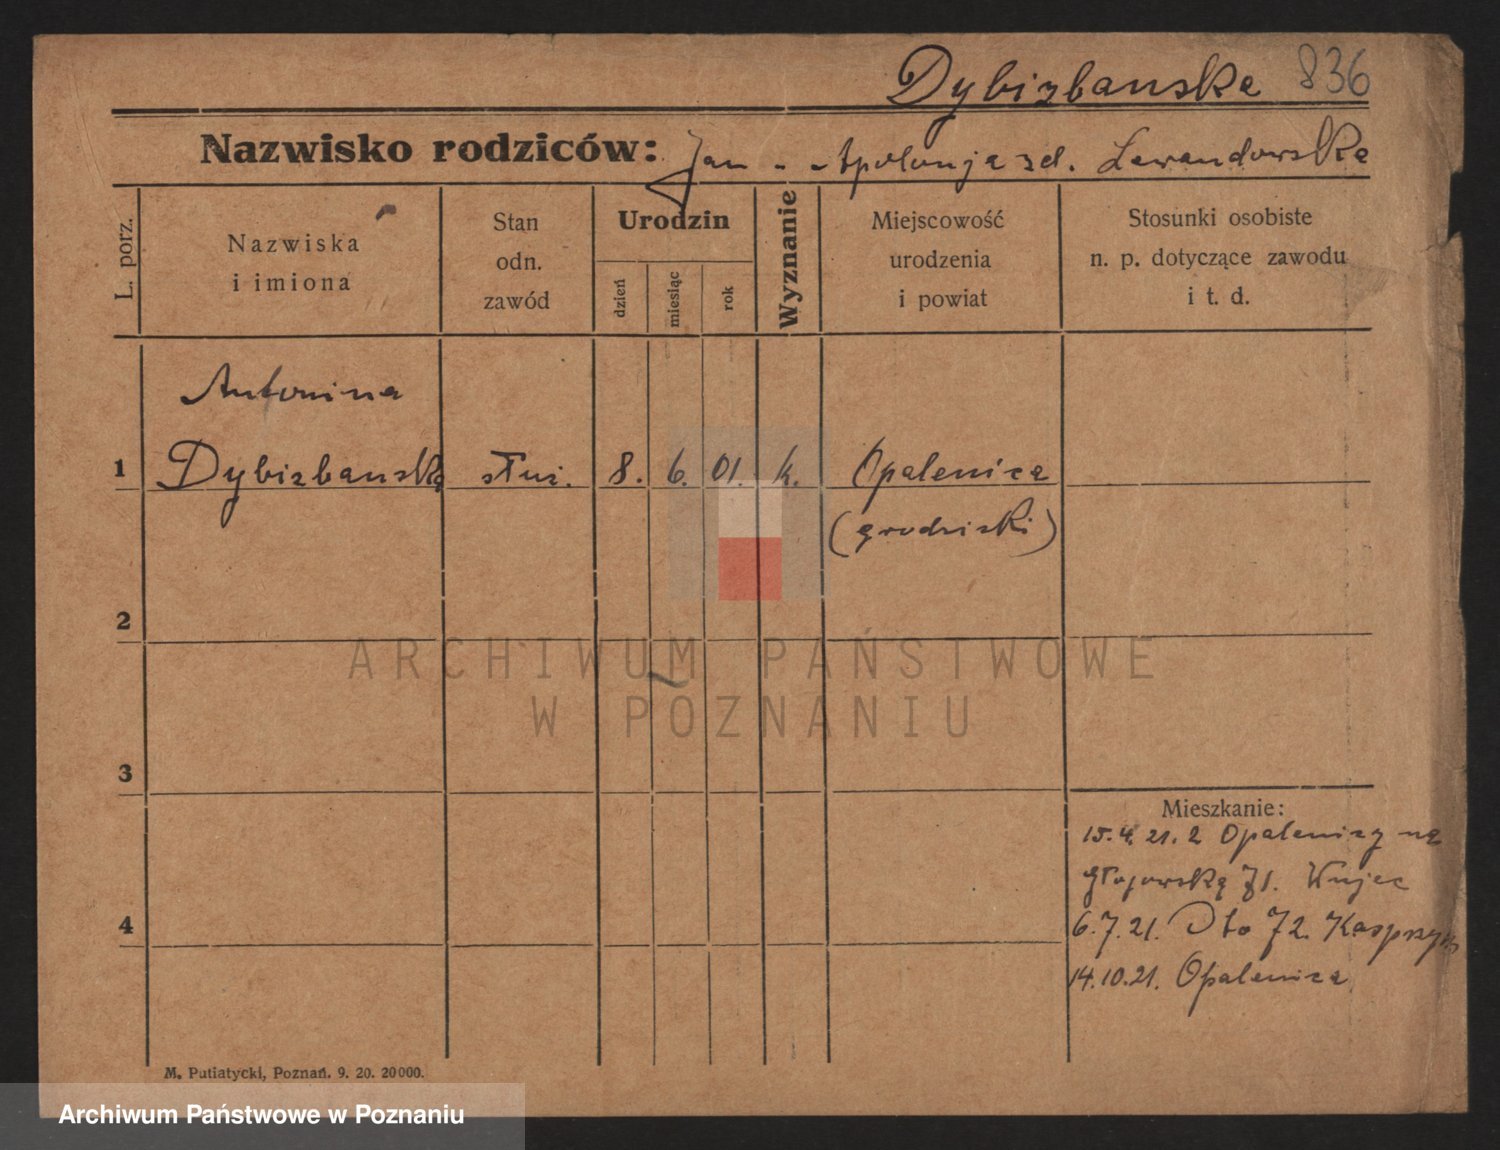 Dybizbanska 836
Nazwisko rodziców: Jan - Apolonja zd. Lewandowska
L. porz.
Nazwiska
i imiona
Stan
odn.
zawód
Urodzin
dzień
miesiąc
rok
Wyznanie
Miejscowość
urodzenia
i powiat
Stosunki osobiste
n. p. dotyczące zawodu
i t. d.
Antonina
1 Dybizbanska służ. 8. 6. 01. k. Opalenica
(grodziski)
2
ARCHIWUM PAŃSTWOWE
W POZNANIU
3
Mieszkanie:
15.4.21. z Opalenicy na
71. Wujec
4
6.7.21. Dto 72. Kasprzyk
14.10.21. Opalenica
M. Putiatycki, Poznań. 9. 20. 20000.
Archiwum Państwowe w Poznaniu